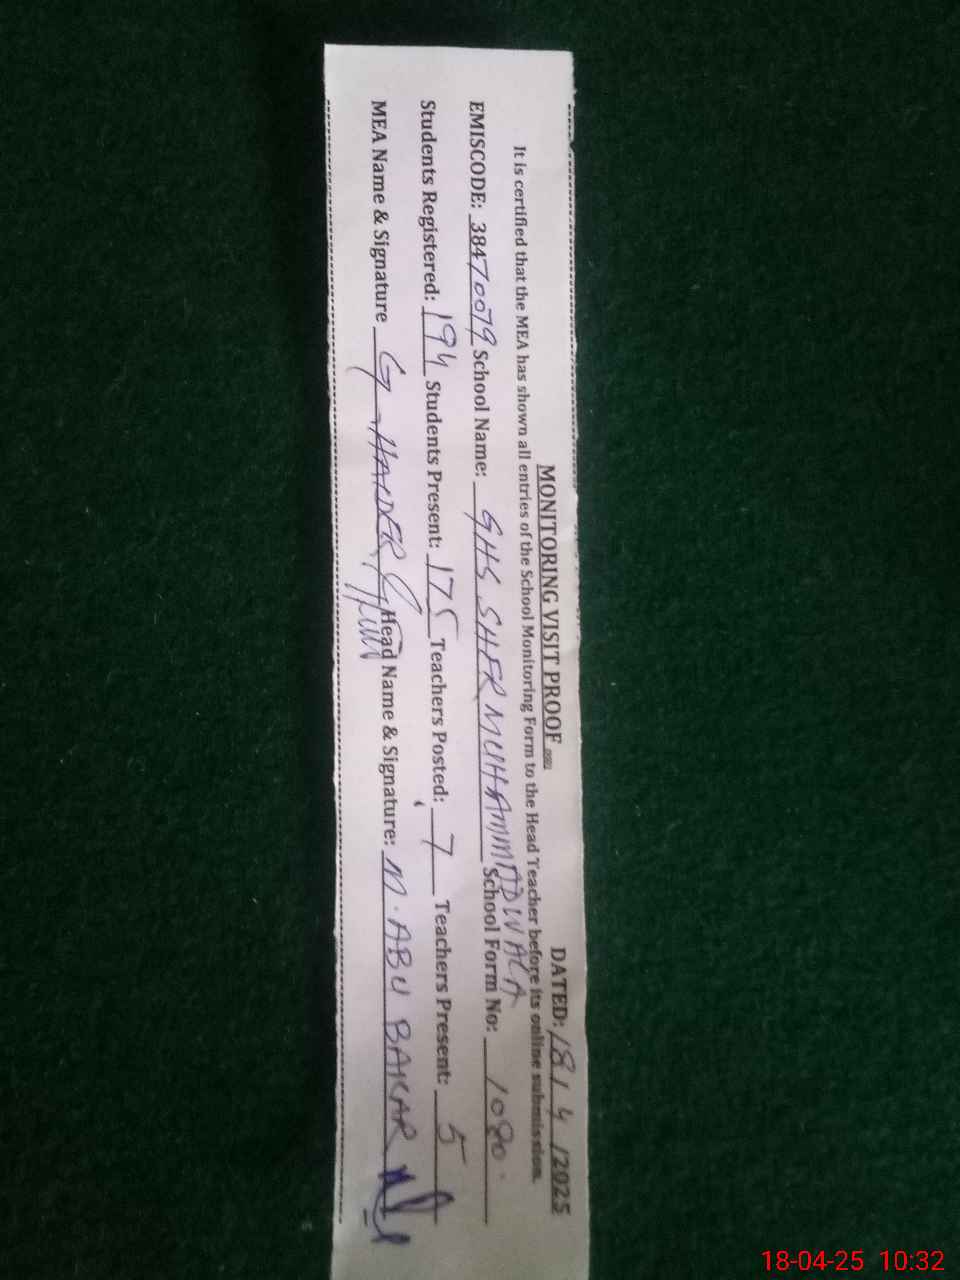 MONITORING VISIT PROOF
DATED: 18/4/2025
It is certified that the MEA has shown all entries of the School Monitoring Form to the Head Teacher before its online submission.
EMISCODE: 38470079 School Name: GHS SHER MUHAMMAD WALA School Form No: 1080
Students Registered: 194 Students Present: 175 Teachers Posted: 7 Teachers Present: 5
MEA Name & Signature G-HAIDER Head Name & Signature: M.ABU BAKAR
18-04-25 10:32